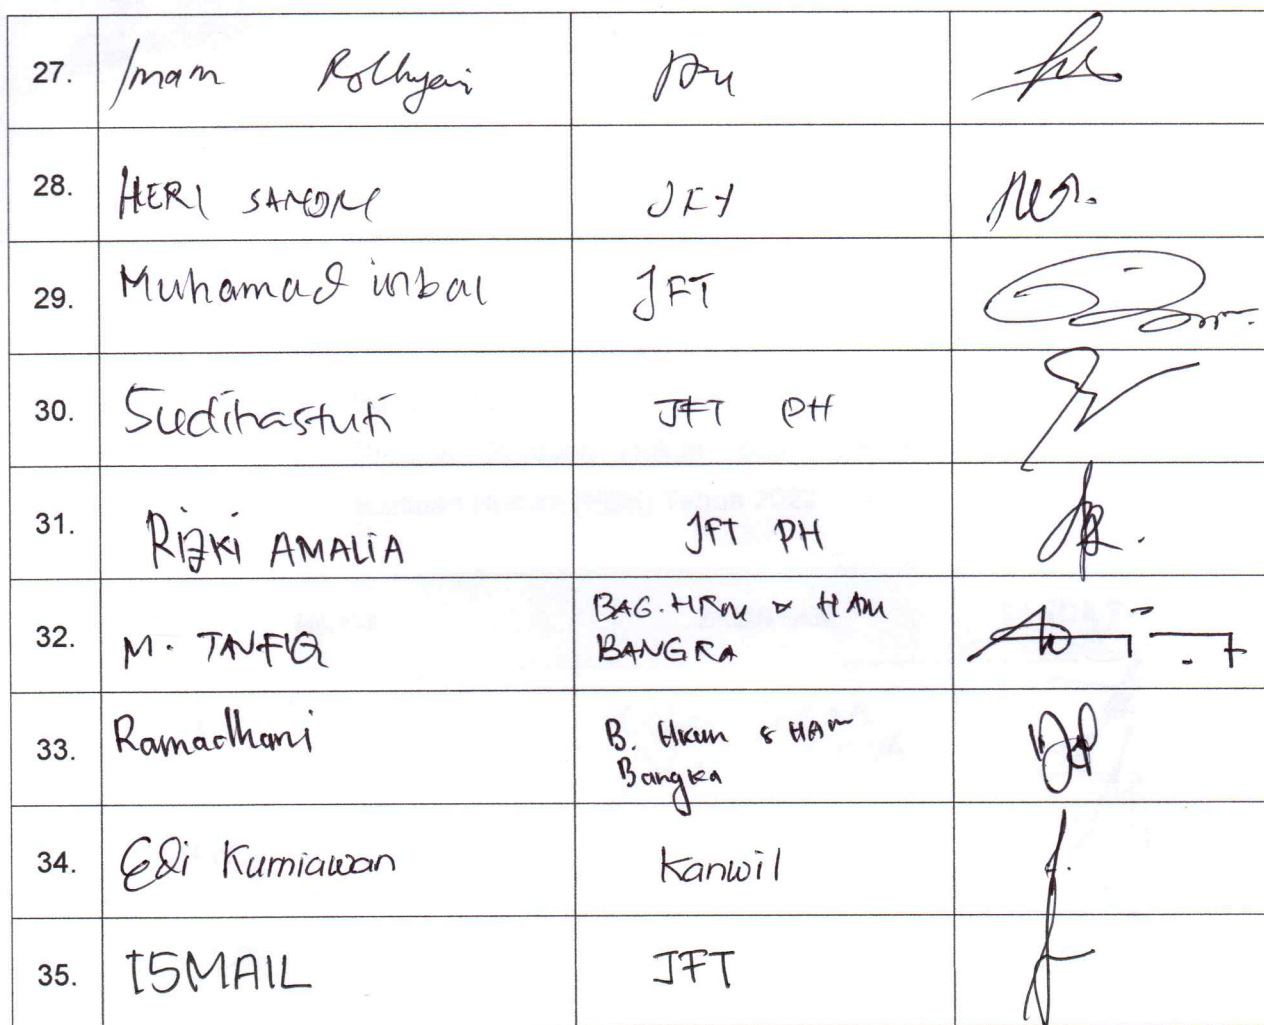 27. Imam
28. HERI JFT
29. Muhamad iqbal JFT
30. Sudihastuti JFT PH
31. Rizki AMALIA JFT PH
32. M. TAUFIQ BAG. HKM & HAM
BANGKA
33. Ramadhani B. Hkum & HAM
Bangka
34. Edi Kurniawan Kanwil
35. ISMAIL JFT